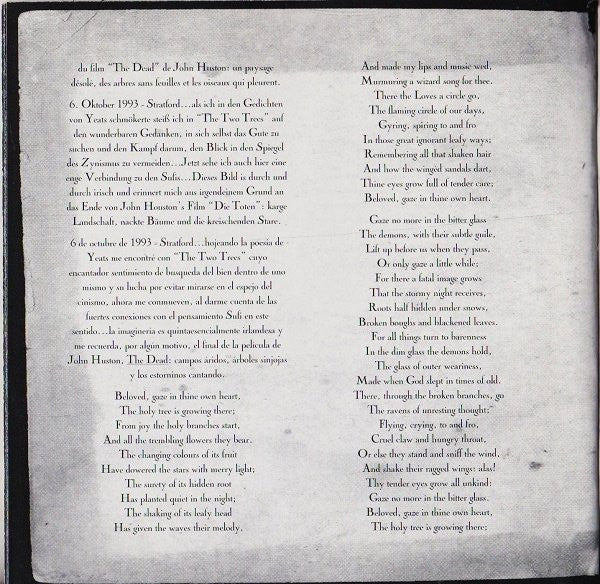 du film "The Dead" de John Huston: un paysage
désolé, des arbres sans feuilles et les oiseaux qui pleurent.
6. Oktober 1993 - Stratford...als ich in den Gedichten
von Yeats schmökerte steiß ich in "The Two Trees" auf
den wunderbaren Gedänken, in sich selbst das Gute zu
suchen und den Kampf darum, den Blick in den Spiegel
des Zynismus zu vermeiden...Jetzt sehe ich auch hier eine
enge Verbindung zu den Sufis...Dieses Bild is durch und
durch irisch und erinnert mich aus irgendeinem Grund an
das Ende von John Houston's Film "Die Toten" : karge
Landschaft, nackte Bäume und die kreischenden Stare.
6 de octubre de 1993 - Stratford...hojeando la poesia de
Yeats me encontré con "The Two Trees" cuyo
encantador sentimiento de busqueda del bien dentro de uno
mismo y su lucha por evitar mirarse en el espejo del
cinismo, ahora me conmueven, al darme cuenta de las
fuertes conexiones con el pensamiento Sufi en este
sentido...la imagineria es quintaesencialmente irlandesa y
me recuerda, por algun motivo, el final de la pelicula de
John Huston, The Dead: campos áridos, árboles sinjojas
y los estorninos cantando.
Beloved, gaze in thine own heart,
The holy tree is growing there;
From joy the holy branches start,
And all the trembling flowers they bear.
The changing colours of its fruit
Have dowered the stars with merry light;
The surety of its hidden root
Has planted quiet in the night;
The shaking of its leafy head
Has given the waves their melody,
And made my lips and music wed,
Murmuring a wizard song for thee.
There the Loves a circle go,
The flaming circle of our days,
Gyring, spiring to and fro
In those great ignorant leafy ways;
Remembering all that shaken hair
And how the winged sandals dart,
Thine eyes grow full of tender care;
Beloved, gaze in thine own heart.
Gaze no more in the bitter glass
The demons, with their subtle guile,
Lift up before us when they pass,
Or only gaze a little while;
For there a fatal image grows
That the stormy night receives,
Roots half hidden under snows,
Broken boughs and blackened leaves.
For all things turn to barenness
In the dim glass the demons hold,
The glass of outer weariness,
Made when God slept in times of old.
There, through the broken branches, go
The ravens of unresting thought;
Flying, crying, to and fro,
Cruel claw and hungry throat,
Or else they stand and sniff the wind,
And shake their ragged wings: alas!
Thy tender eyes grow all unkind:
Gaze no more in the bitter glass.
Beloved, gaze in thine own heart,
The holy tree is growing there;